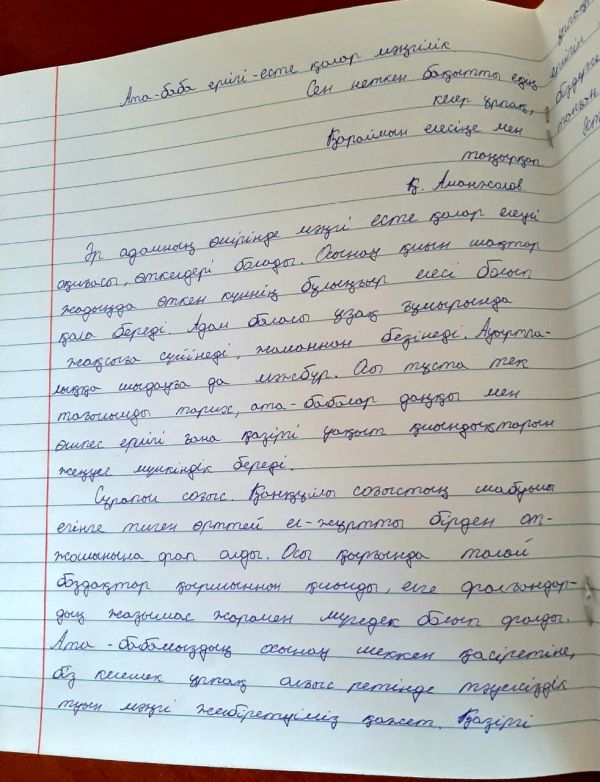 Ата-баба ерлігі-есте қалар мәңгілік
Сен неткен бақытты едің
келер ұрпақ,
Қараймын елесіңе мен
таңырқап
Қ. Аманжолов
Әр адамның өмірінде мәңгі есте қалар елеулі
оқиғасы, өткелдері болады. Осынау қиын шақтар
жадыңда өткен күннің бұлыңғыр елесі болып
қала береді. Адам баласы ұзақ ғұмырында
жақсыға сүйінеді, жаманнан безінеді. Ауыртпа-
лыққа шыдауға да мәжбүр. Осы тұста тек
тағылымды тарих, ата-бабалар даңқы мен
өшпес ерлігі ғана қазіргі уақыт қиындықтарын
жеңуге мүмкіндік береді.
Сұрапыл соғыс. Қанқұйлы соғыстың шабуылы
егінге тиген өрттей ел-жұртты бірден от-
жалынына орап алды. Осы қырғында талай
боздақтар қыршыннан қиылды, елге оралғандар-
дың жазылмас жарамен мүгедек болып оралды.
Ата-бабамыздың осынау шеккен қасіретіне,
біз келешек ұрпақ алғыс ретінде тәуелсіздік
туын мәңгі желбіретуіміз қажет. Қазіргі